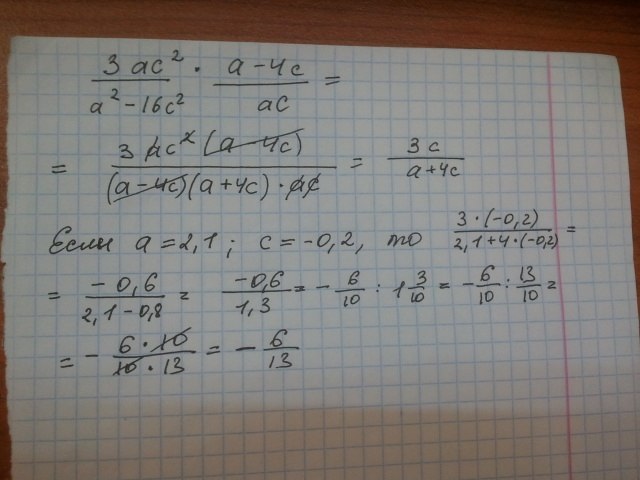 3ac²/(a²-16c²) · (a-4c)/ac =
= 3ac²(a-4c)/((a-4c)(a+4c)·ac) = 3c/(a+4c)
Если a=2,1; c=-0,2, то 3·(-0,2)/(2,1+4·(-0,2)) =
= -0,6/(2,1-0,8) = -0,6/1,3 = -6/10 : 1 3/10 = -6/10 : 13/10 =
= -6·10/(10·13) = -6/13